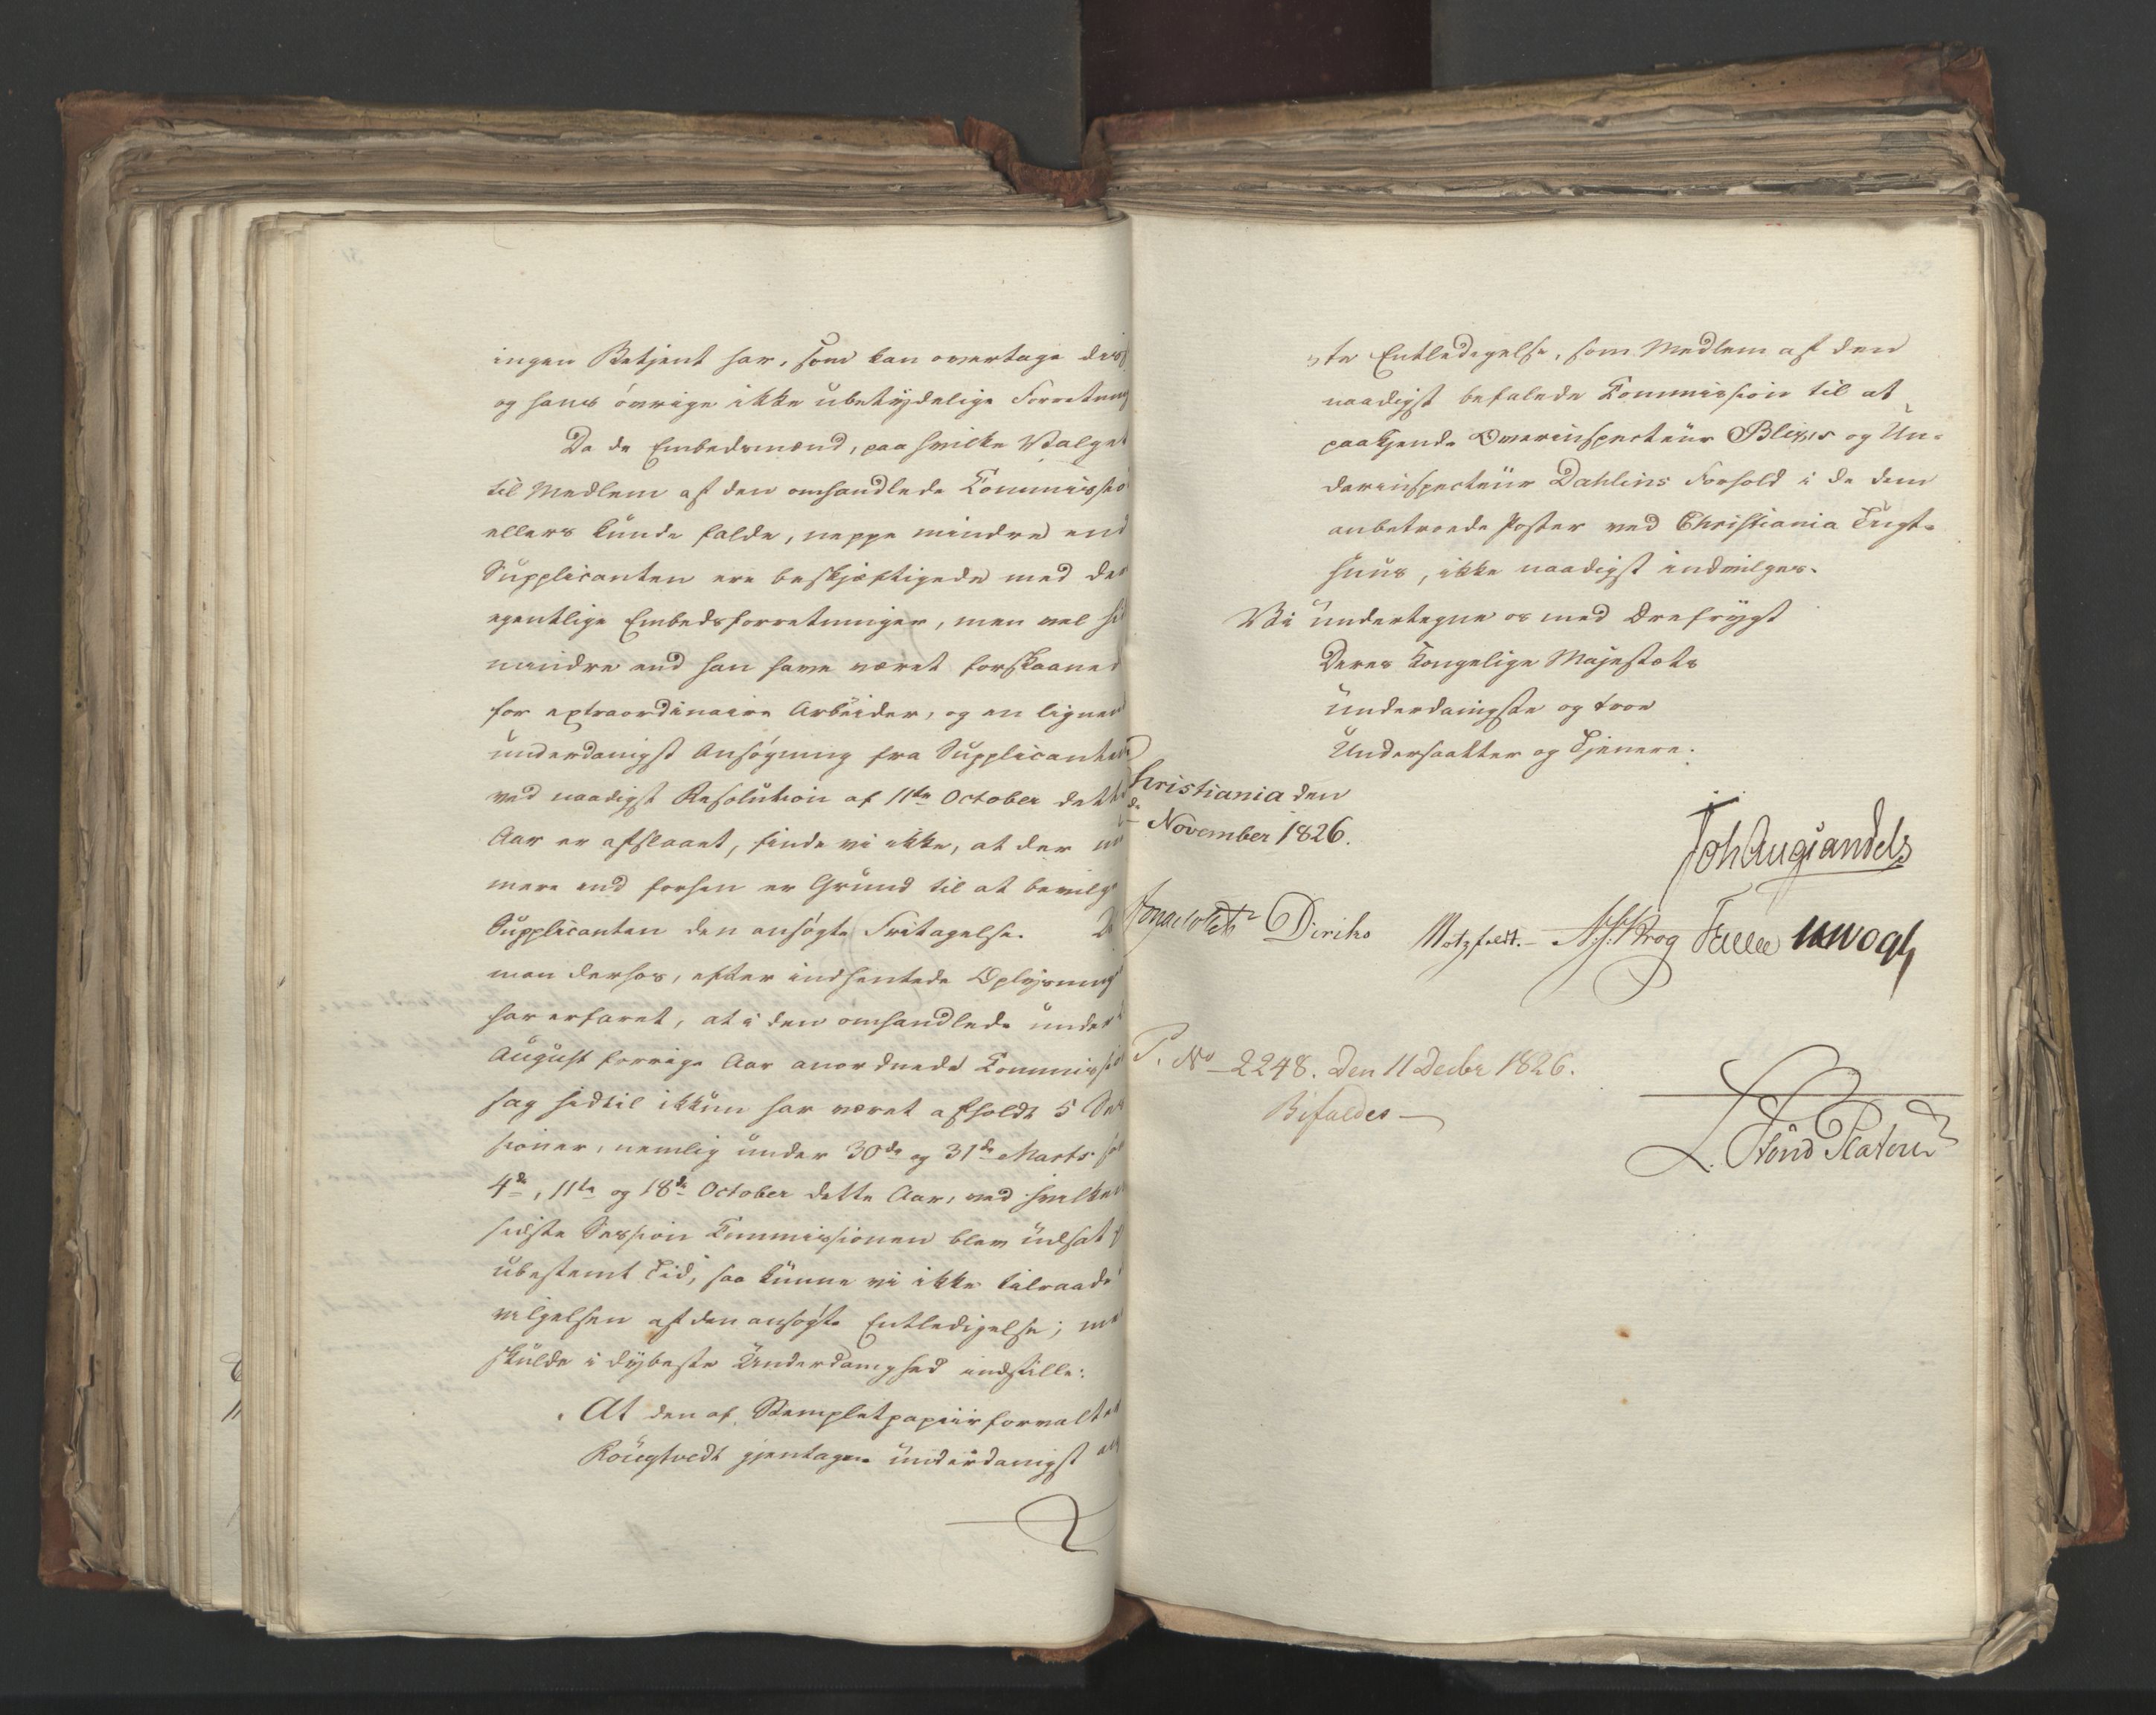 ingen Betjent har, som kan overtage dis
og hans övrige ikke ubetydelige Forretning
Da de Embedsmænd, paa hvilke Valget
til Medlem af den omhandlede Commissio
ellers kunde falde, neppe mindre end
Supplicanten ere beskjæftigede med der
egentlige Embedsforretninger, men vel
mindre end han have været forskaaned
for extraordinaire Arbeider, og en lignen
underdanigst Ansögning fra Supplicanten
ved naadigst Resolution af 11te October dette
Aar er afslaaet, finde vi ikke, at der nu
mere end forhen er Grund til at bevilge
Supplicanten den ansögte Fritagelse. Da
man derhos, efter indhentede Oplysning
har erfaret, at i den omhandlede under
August forrige Aar anordnede Commissi
sag hidtil ikkun har været afholdt 5 Ses
sioner, nemlig under 30de og 31de Marts
4de, 11te og 18de October dette Aar, ved hvilken
sidste Session Commissionen blev udsat
ubestemt Tid, saa kunne vi ikke tilraade
vilgelsen af den ansögte Entledigelse; me
skulde i dybeste Underdanighed indstille:
At den af Stempletpapiirforvalter
Röughtvedt gjentagne underdanigst an
te Entledigelse, som Medlem af den
naadigst befalede Commission til at
paakjende Overinspecteur Blixes og Un-
derinspecteur Dahlins Forhold i de dem
anbetroede Poster ved Christiania Tugt-
huus, ikke naadigst indvilges.
Vi undertegne os med Ærefrygt
Deres Kongelige Majestæts
underdanigste og troe
Undersaatter og Tjenere.
hristiania den
November 1826.
Joh Aug Sandels
Diriks Motzfeldt. Krog Vogt
P. No 2248. Den 11 Decbr 1826.
Bifaldes
Platen